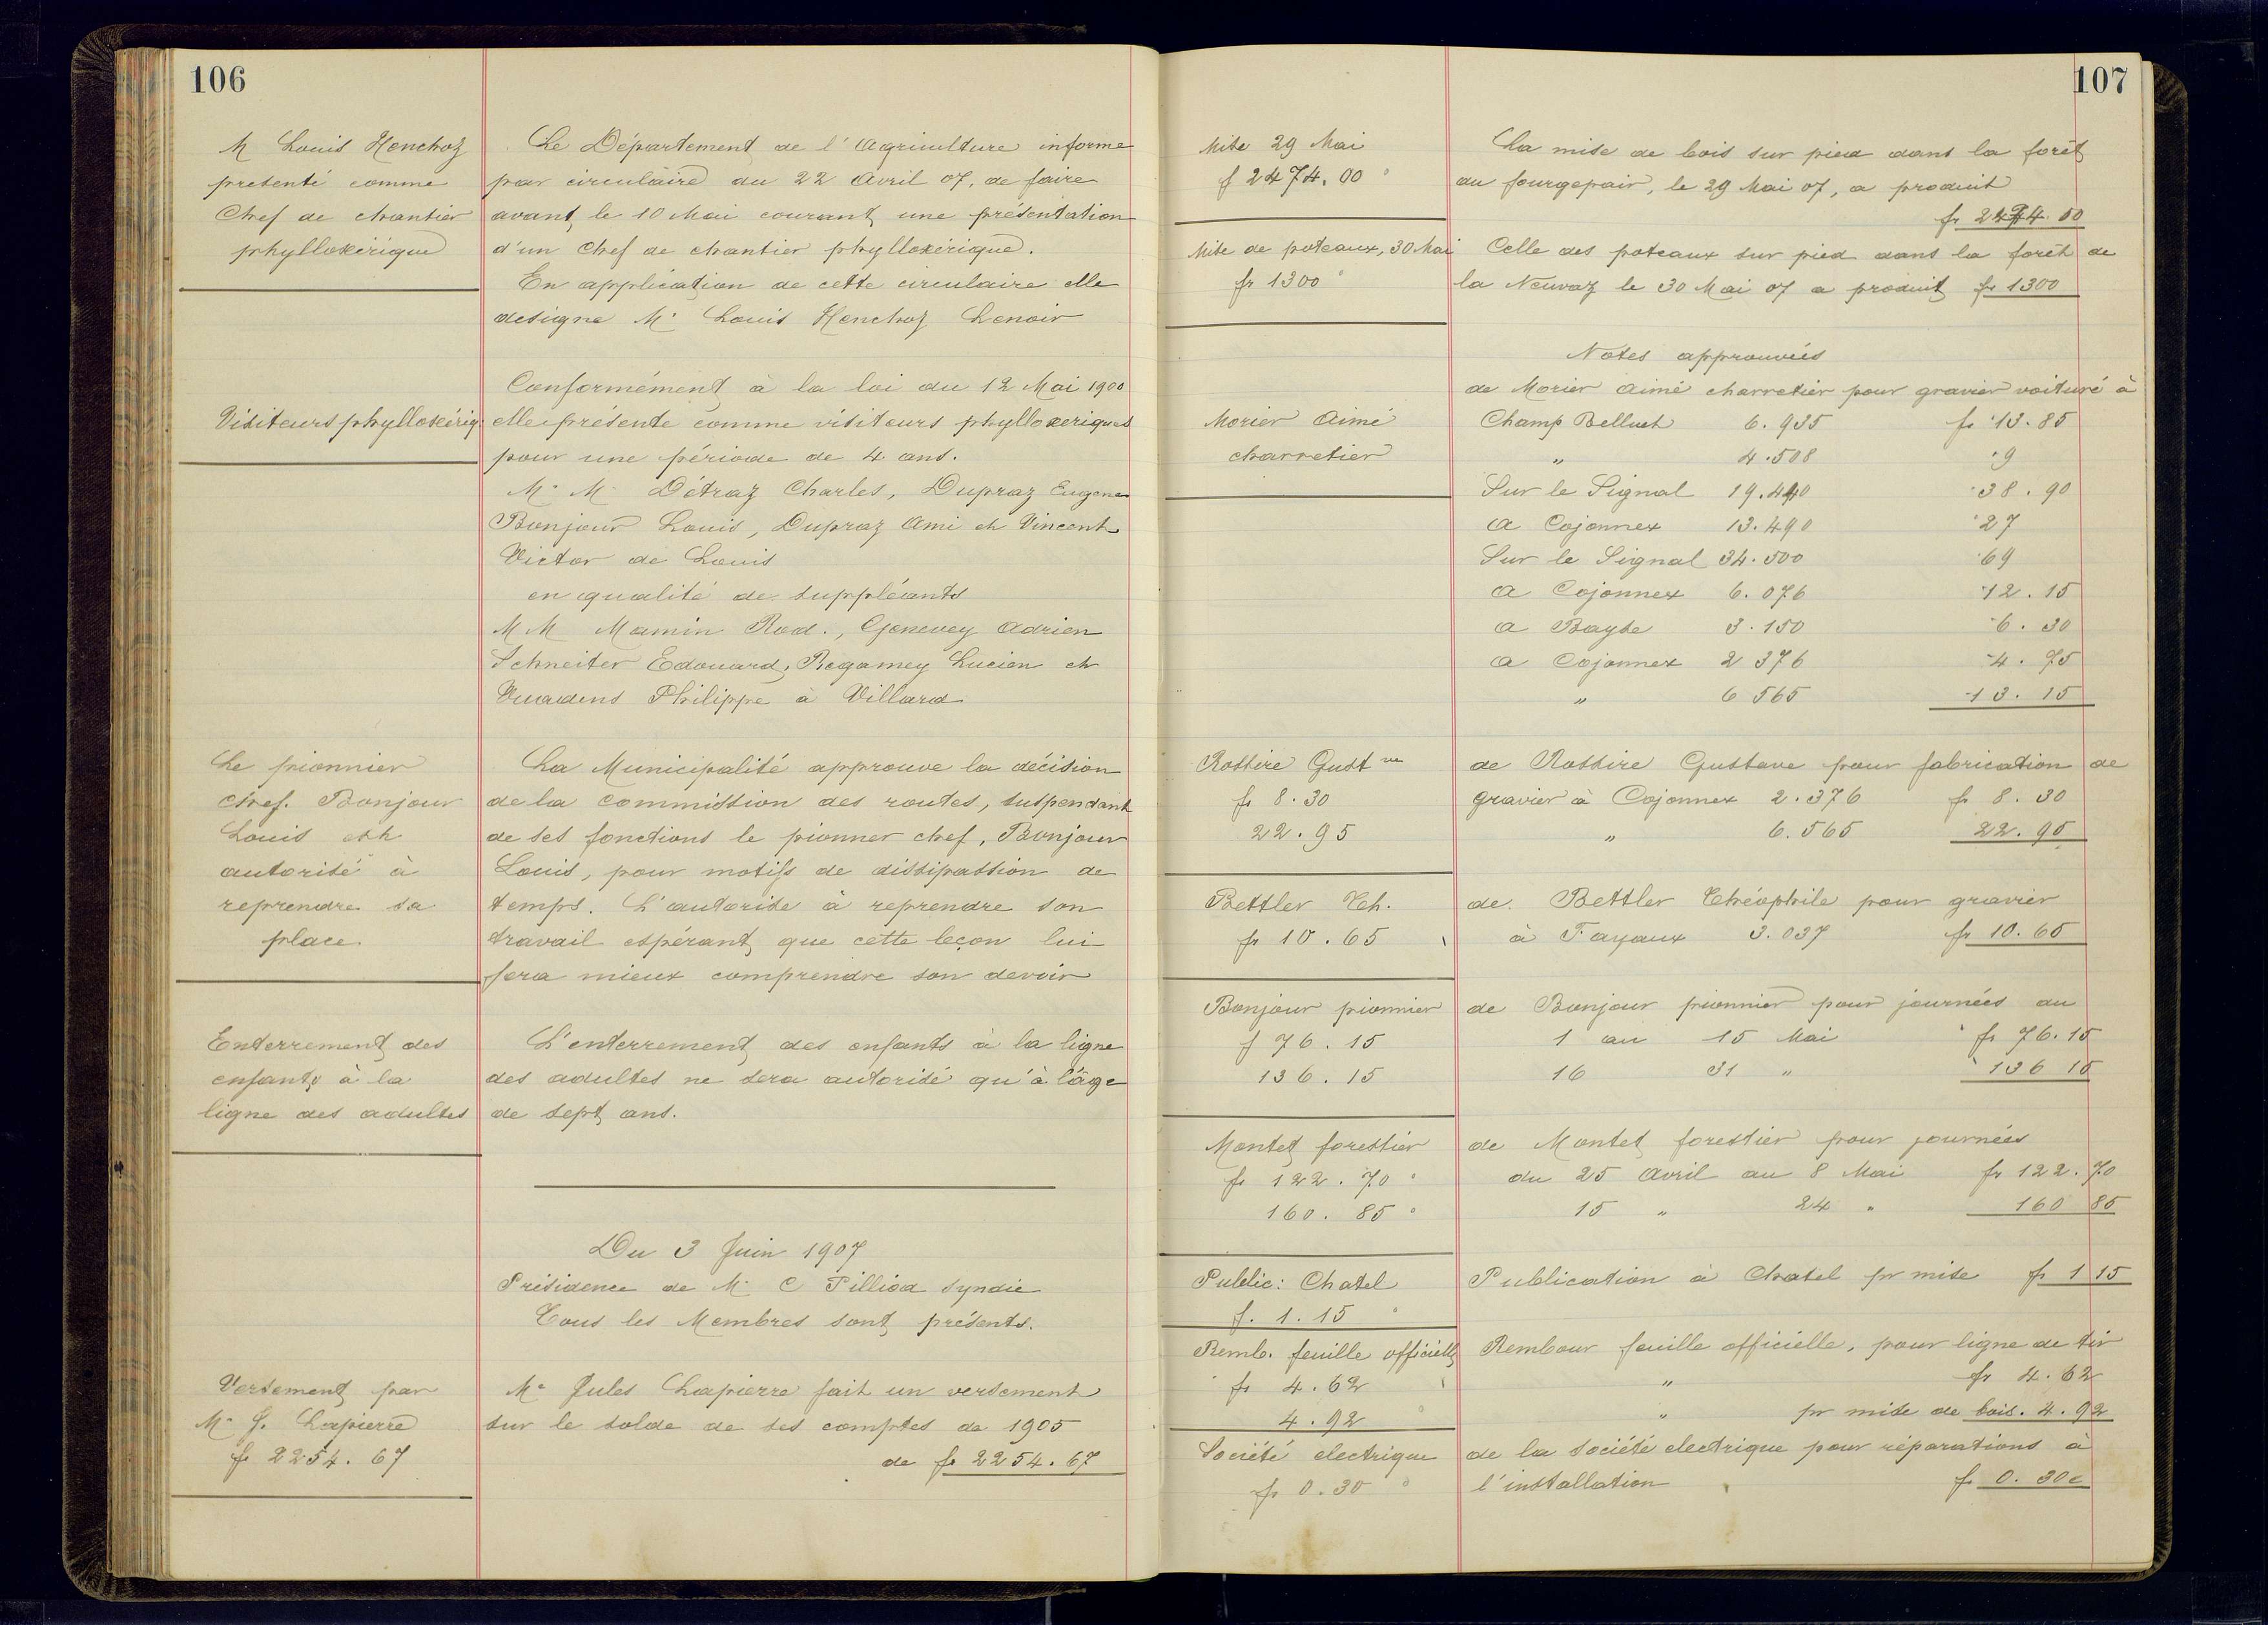 106
M Louis Henchoz
presenté comme
Chef de chantier
phylloxérique
Le Département de l'Agriculture informe
par circulaire du 22 Avril 07, de faire
avant le 10 Mai courant une présentation
d'un Chef de chantier phylloxérique.
En application de cette circulaire elle
designe Mr Louis Henchoz Lenoir
Visiteurs phylloxériq.
Conformément à la loi du 12 Mai 1900
elle présente comme visiteurs phylloxeriques
pour une période de 4 ans.
Mr Mr Détraz Charles, Dupraz Eugene
Bonjour Louis, Dupraz Ami et Vincent
Victor de Louis
en qualité de suppléants
M M Mamin Rod., Genevey Adrien
Schneiter Edouard, Regamey Lucien et
Vuadens Philippe à Villard
Le pionnier
chef. Bonjour
Louis est
autorisé à
reprendre sa
place.
La Municipalité approuve la décision
de la Commission des routes, suspendant
de ses fonctions le pionner chef, Bonjour
Louis, pour motifs de dissipassion de
temps. L'autorise à reprendre son
travail espérant que cette leçon lui
fera mieux comprendre son devoir
Enterrement des
enfants à la
ligne des adultes
L'enterrement des enfants à la ligne
des adultes ne sera autorisé qu'à l'âge
de sept ans.
Du 3 Juin 1907
Présidence de Mr C Pilliod Syndic
Tous les Membres sont présents.
Versement par
Mr J. Lapierre
fr 2254.67
Mr Jules Lapierre fait un versement
sur le solde de ses comptes de 1905
de fr 2254.67
107
Mise 29 Mai
f 2474.00
La mise de bois sur pied dans la forêt
du fourgepair, le 29 Mai 07, a produit
fr 2474.00
Mise de poteaux, 30 Mai
fr 1300
Celle des poteaux sur pied dans la forêt de
la Neuvaz le 30 Mai 07 a produit fr 1300
Notes approuvées
Morier Aimé
charretier
de Morier Aimé charretier pour gravier voituré à
Champ Belluet 6.935 fr 13.85
" 4.508 9
Sur le Signal 19.440 38.90
A Cojonnex 13.490 27
Sur le Signal 34.500 69
A Cojonnex 6.076 12.15
A Bayse 3.150 6.30
A Cojonnex 2 376 4.75
" 6 565 13.15
Rossire Gustve
fr 8.30
22.95
de Rossire Gustave pour fabrication de
gravier à Cojonnex 2.376 fr 8.30
" 6.565 22.95
Bettler Th.
fr 10.65
de Bettler Théophile pour gravier
à Fayaux 3.037 fr 10.65
Bonjour pionnier
f 76.15
136.15
de Bonjour pionnier pour journées du
1 au 15 Mai fr 76.15
16 31 " 136 15
Montet forestier
fr 122.70
160.85
de Montet forestier pour journées
du 25 Avril au 8 Mai fr 122.70
15 " 24 " 160 85
Public: Chatel
f. 1.15
Publication à Chatel pr mise fr 1 15
Remb. feuille officielle
fr 4.62
4.92
Rembour feuille officielle, pour ligne de tir
" fr 4.62
" pr mise de bois. 4.92
Société electrique
fr 0.30
de la Société electrique pour réparations à
l'installation f 0.30c